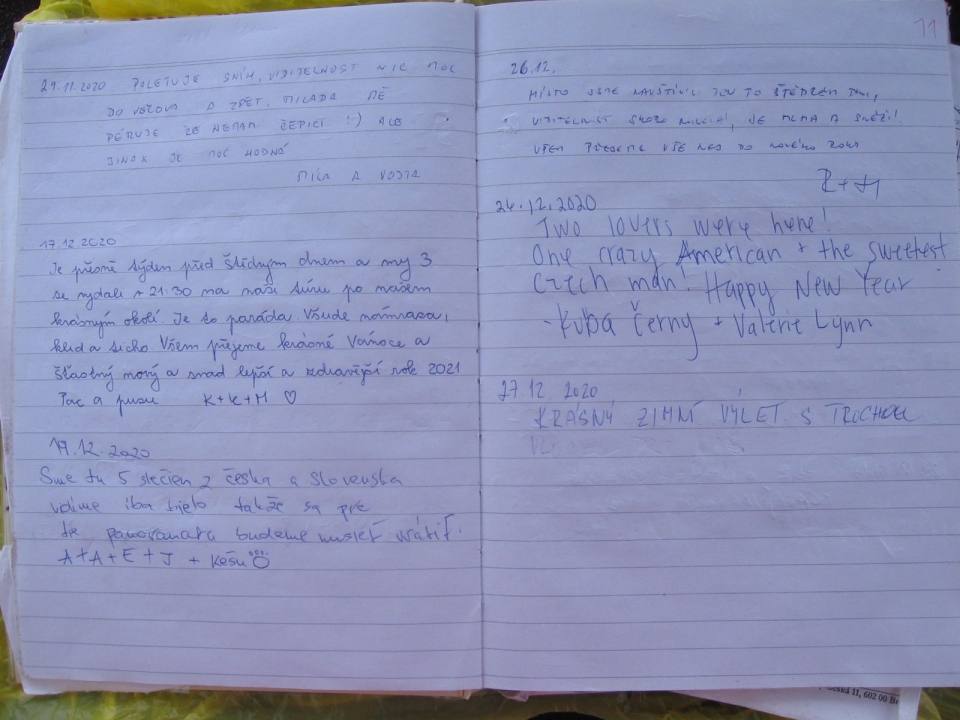 29.11.2020 POLETUJE SNÍH, VIDITELNOST NIC MOC
DO VEŽOVA A ZPĚT. MILADA MĚ
PÉRUJE ŽE NEMAM ČEPICI :-) ALE
JINAK JE MOC HODNÁ
MILA A VOJTA
17.12 2020
Je přesně týden před Štědrým dnem a my 3
se vydali v 21:30 na naši túru po našem
krásným okolí. Je to paráda. Všude námraza,
klid a ticho Všem přejeme krásné Vánoce a
šťastný nový a snad lepší a zdravější rok 2021
Pác a pusu K+K+M ♡
17.12.2020
Sme tu 5 slečien z česka a slovenska
vidíme iba bielo takže sa pre
tie panoramata budeme musieť vrátiť.
A+A+E+J + Kešu
11
26.12.
MÍSTO JSME NAVŠTÍVILI JEN TO ŠTĚDREM DNI,
VIDITELNOST SKORO NULOVÁ, JE MLHA A SNĚŽÍ!
VŠEM PŘEJEME VŠE NEJ DO NOVÉHO ROKU
24.12.2020
Two lovers were here!
One crazy American + the sweetest
Czech man! Happy New Year
- Kuba Černý + Valerie Lynn
27.12 2020
KRÁSNÝ ZIMNÍ VÝLET S
Česká 11, 602 00 B